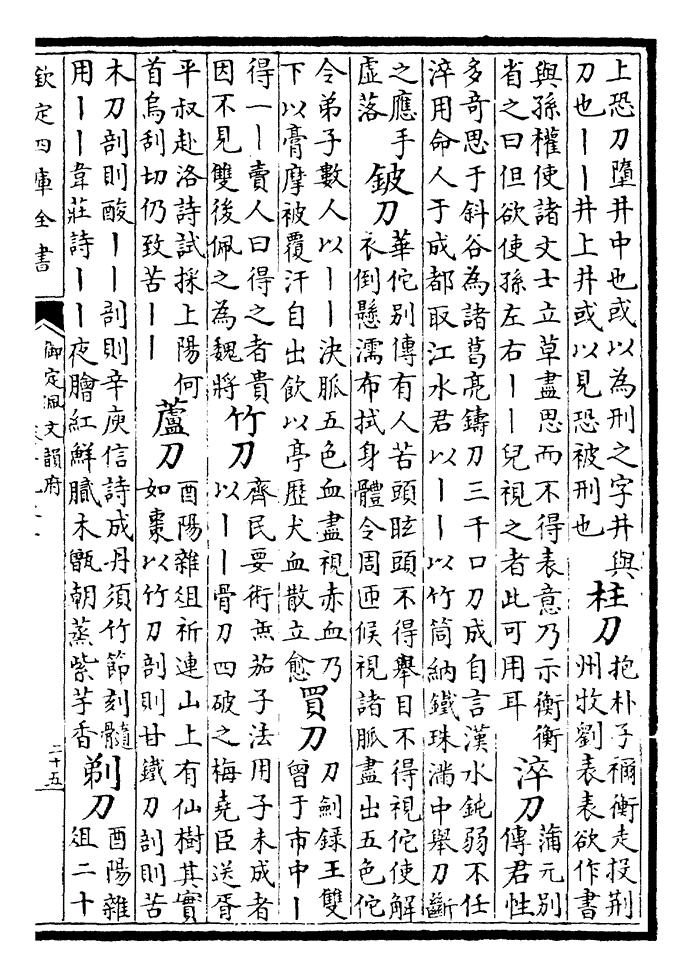 上恐刀墮井中也或以為刑之字井與
刀也丨丨井上井或以見恐被刑也
柱刀
抱朴子禰衡走投荆
州牧劉表表欲作書
與孫權使諸文士立草盡思而不得表意乃示衡衡
省之曰但欲使孫左右丨丨兒視之者此可用耳
淬刀
蒲元別
傳君性
多奇思于斜谷為諸葛亮鑄刀三千口刀成自言漢水鈍弱不任
淬用命人于成都取江水君以丨丨以竹筒納鐵珠滿中舉刀斷
之應手
虛落
鈹刀
華佗別傳有人苦頭眩頭不得舉目不得視佗使解
衣倒懸濡布拭身體令周匝候視諸脈盡出五色佗
令弟子數人以丨丨決脈五色血盡視赤血乃
下以膏摩被覆汗自出飲以亭歷犬血散立愈
買刀
刀劍録王雙
曾于市中丨
得一丨賣人曰得之者貴
因不見雙後佩之為魏將
竹刀
齊民要術無茄子法用子未成者
以丨丨骨刀四破之梅堯臣送胥
平叔赴洛詩試採上陽何
首烏刮切仍致苦丨丨
蘆刀
酉陽雜俎祈連山上有仙樹其實
如棗以竹刀剖則甘鐵刀剖則苦
木刀剖則酸丨丨剖則辛庾信詩成丹須竹節刻髓
用丨丨韋莊詩丨丨夜鱠紅鮮膩木甑朝蒸紫芋香
剃刀
酉陽雜
俎二十
欽定四庫全書
御定佩文韻府
二十五